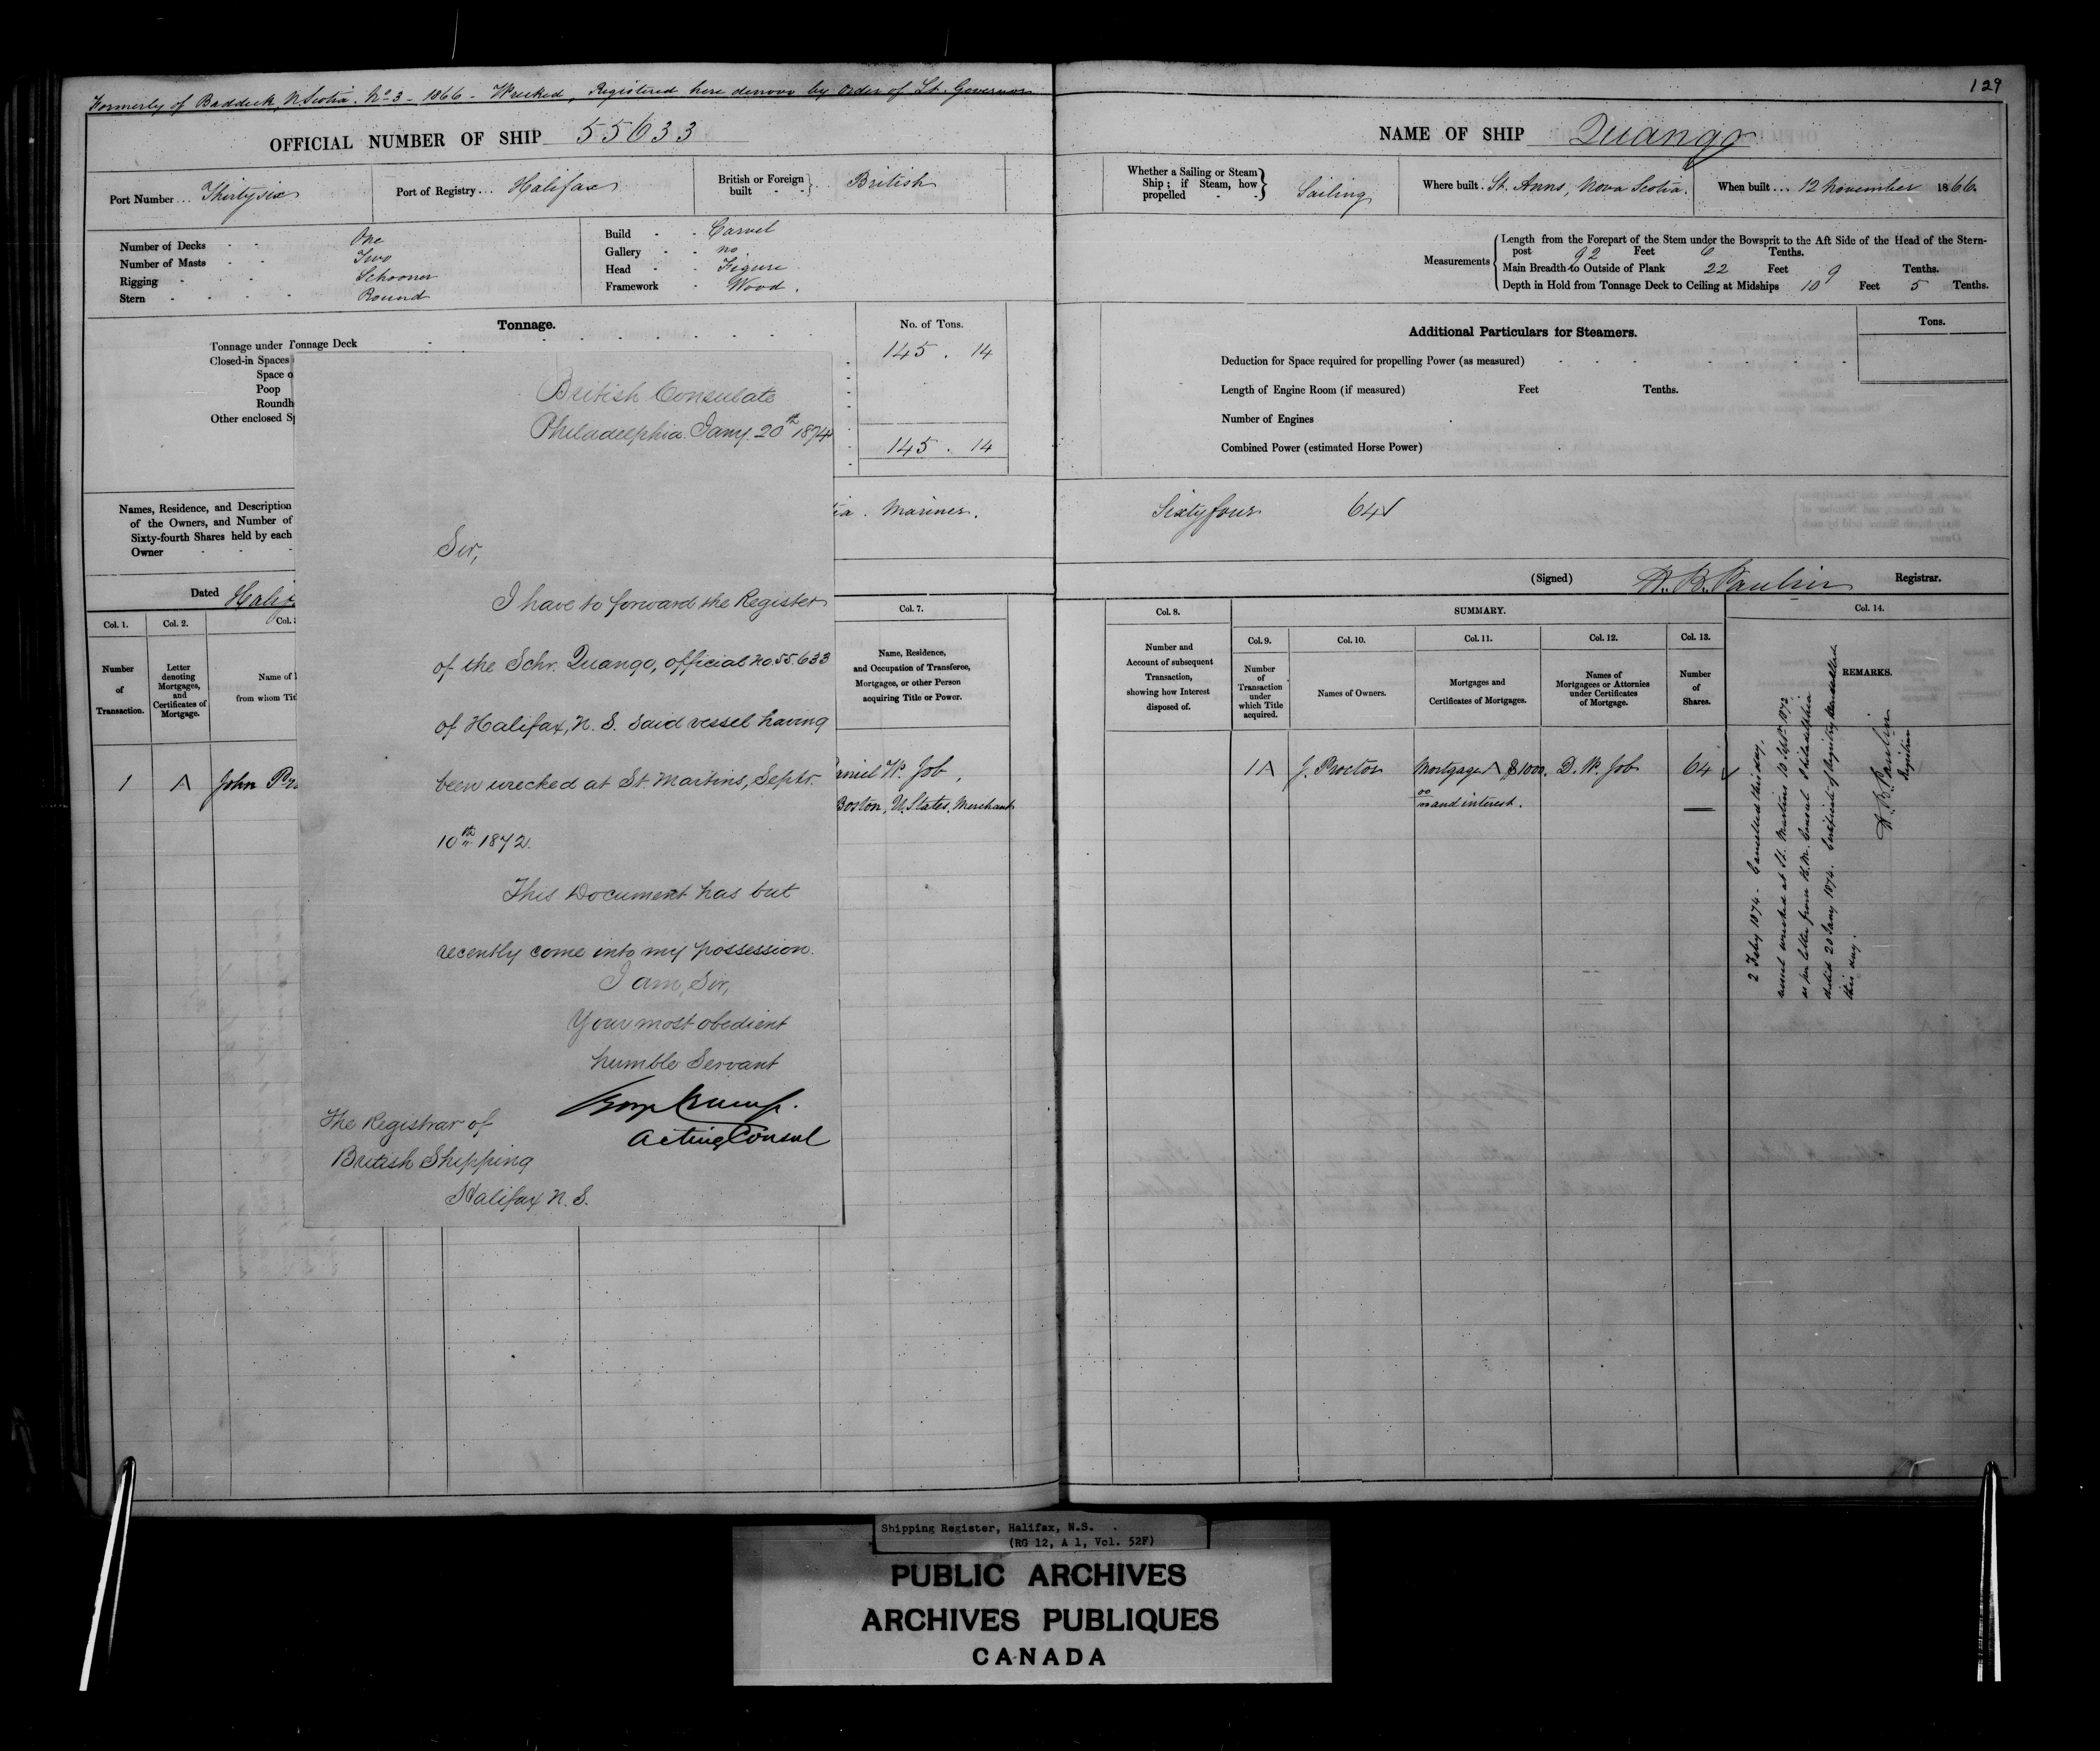 Formerly of Baddeck, N Scotia. No 3 - 1866 - Wrecked, Registered here denovo by order of Lt. Governor
OFFICIAL NUMBER OF SHIP 55633
Port Number... Thirtysix
Port of Registry... Halifax
British or Foreign built - - } .. British
Number of Decks - - One
Number of Masts - - Two
Rigging - - - Schooner
Stern - - - - Round
Build - - Carvel
Gallery - - no
Head - - Figure
Framework - Wood.
Tonnage.
No. of Tons.
Tonnage under Tonnage Deck
145 . 14
Closed-in Spaces
Space o
Poop
Roundh
Other enclosed S
145 . 14
Names, Residence, and Description
of the Owners, and Number of
Sixty-fourth Shares held by each
Owner - - -
ia. Mariner.
Dated Halif
Col. 1.
Col. 2.
Col.
Col. 7.
Number of Transaction.
Letter denoting Mortgages, and Certificates of Mortgage.
Name of
from whom Tit
Name, Residence,
and Occupation of Transferee,
Mortgagee, or other Person
acquiring Title or Power.
1 A John Pr
aniel W. Job,
Boston, U. States, Merchant
British Consulate
Philadelphia. Jany. 20th 1874
Sir,
I have to forward the Register
of the Schr. Quango, official No. 55.633
of Halifax, N. S. said vessel having
been wrecked at St. Martins, Septr.
10th 1872.
This Document has but
recently come into my possession.
I am, Sir,
Your most obedient
humble Servant
Acting Consul
The Registrar of
British Shipping
Halifax N. S.
129
NAME OF SHIP Quango
Whether a Sailing or Steam
Ship; if Steam, how
propelled - - } Sailing
Where built. St. Anns, Nova Scotia.
When built... 12 November 1866.
Measurements
Length from the Forepart of the Stem under the Bowsprit to the Aft Side of the Head of the Stern-
post 92 Feet 6 Tenths.
Main Breadth to Outside of Plank 22 Feet 9 Tenths.
Depth in Hold from Tonnage Deck to Ceiling at Midships 10 Feet 5 Tenths.
Additional Particulars for Steamers.
Tons.
Deduction for Space required for propelling Power (as measured)
Length of Engine Room (if measured) Feet Tenths.
Number of Engines
Combined Power (estimated Horse Power)
Sixty four 64
(Signed) H. B. Paulin Registrar.
Col. 8.
SUMMARY.
Col. 14.
Col. 9.
Col. 10.
Col. 11.
Col. 12.
Col. 13.
Number and
Account of subsequent
Transaction,
showing how Interest
disposed of.
Number of Transaction under which Title acquired.
Names of Owners.
Mortgages and
Certificates of Mortgages.
Names of
Mortgagees or Attornies
under Certificates
of Mortgage.
Number of Shares.
REMARKS.
1 A J. Proctor Mortgage A $1000. D. W. Job 64
and interest.
2 Feby 1874 - Cancelled this day,
vessel wrecked at St. Martins 10 Septr 1872
as per letter from H. M. Consul Philadelphia
dated 20 Jany 1874. Certificate of Registry cancelled
this day.
H. B. Paulin
Registrar
Shipping Register, Halifax, N.S.
(RG 12, A 1, Vol. 52F)
PUBLIC ARCHIVES
ARCHIVES PUBLIQUES
CANADA